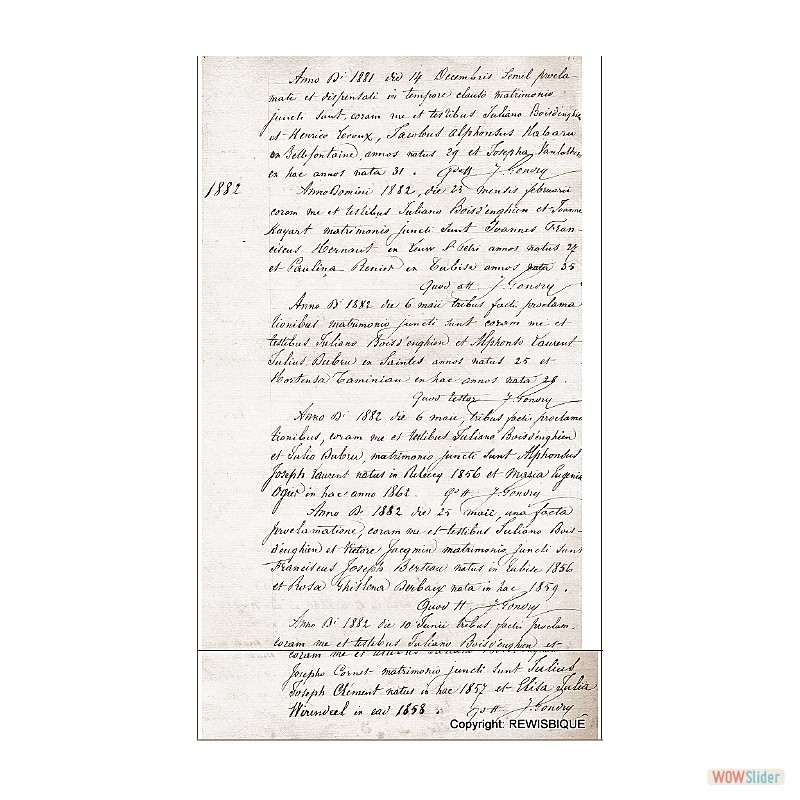 Anno Di 1881 die 14 Decembris Semel procla-
mati et dispensati in tempore clauso matrimonio
juncti sunt, coram me et testibus Juliano Boisdenghien
et Henrico Leroux, Jacobus Alphonsus
en Bellefontaine, annos natus 29 et Josepha
en hac annos nata 31. J. Gondry
1882
Anno Domini 1882, die 25 mensis februarii
coram me et testibus Juliano Boisd'enghien et Joanne
Kayart matrimonio juncti sunt Joannes Fran-
ciscus Hernaut en annos natus
et Paulina Renier en Tubise annos nata 35
Quod att J. Gondry
Anno Di 1882 die 6 maii tribus factis proclama
tionibus matrimonio juncti sunt coram me et
testibus Juliano Boisd'enghien et Alphonso Laurent
Julius Dubru en Saintes annos natus 25 et
Hortensa Taminiau en hac annos nata 28.
Quod testor J. Gondry
Anno Di 1882 die 6 maii, tribus factis proclama
tionibus, coram me et testibus Juliano Boisdenghien
et Julio Dubru, matrimonio juncti sunt Alphonsus
Joseph Laurent natus in Rebecq 1856 et Maria Eugenia
Ogier in hac anno 1862. J. Gondry
Anno Di 1882 die 25 maii, una facta
proclamatione, coram me et testibus Juliano Bois
d'enghien et Victore Jacqmin matrimonio juncti sunt
Franciscus Joseph Berteau natus in Tubise 1856
et Rosa Ghislena Derbaix nata in hac 1859.
Quod tt J. Gondry
Anno Di 1882 die 10 Junii tribus factis proclam.
coram me et testibus Juliano Boisd'enghien et
Josepho Cornet matrimonio juncti sunt Julius
Joseph Clément natus in hac 1857 et Elisa Julia
Werendeel in ead 1858. J. Gondry
Copyright: REWISBIQUE
WOWSlider